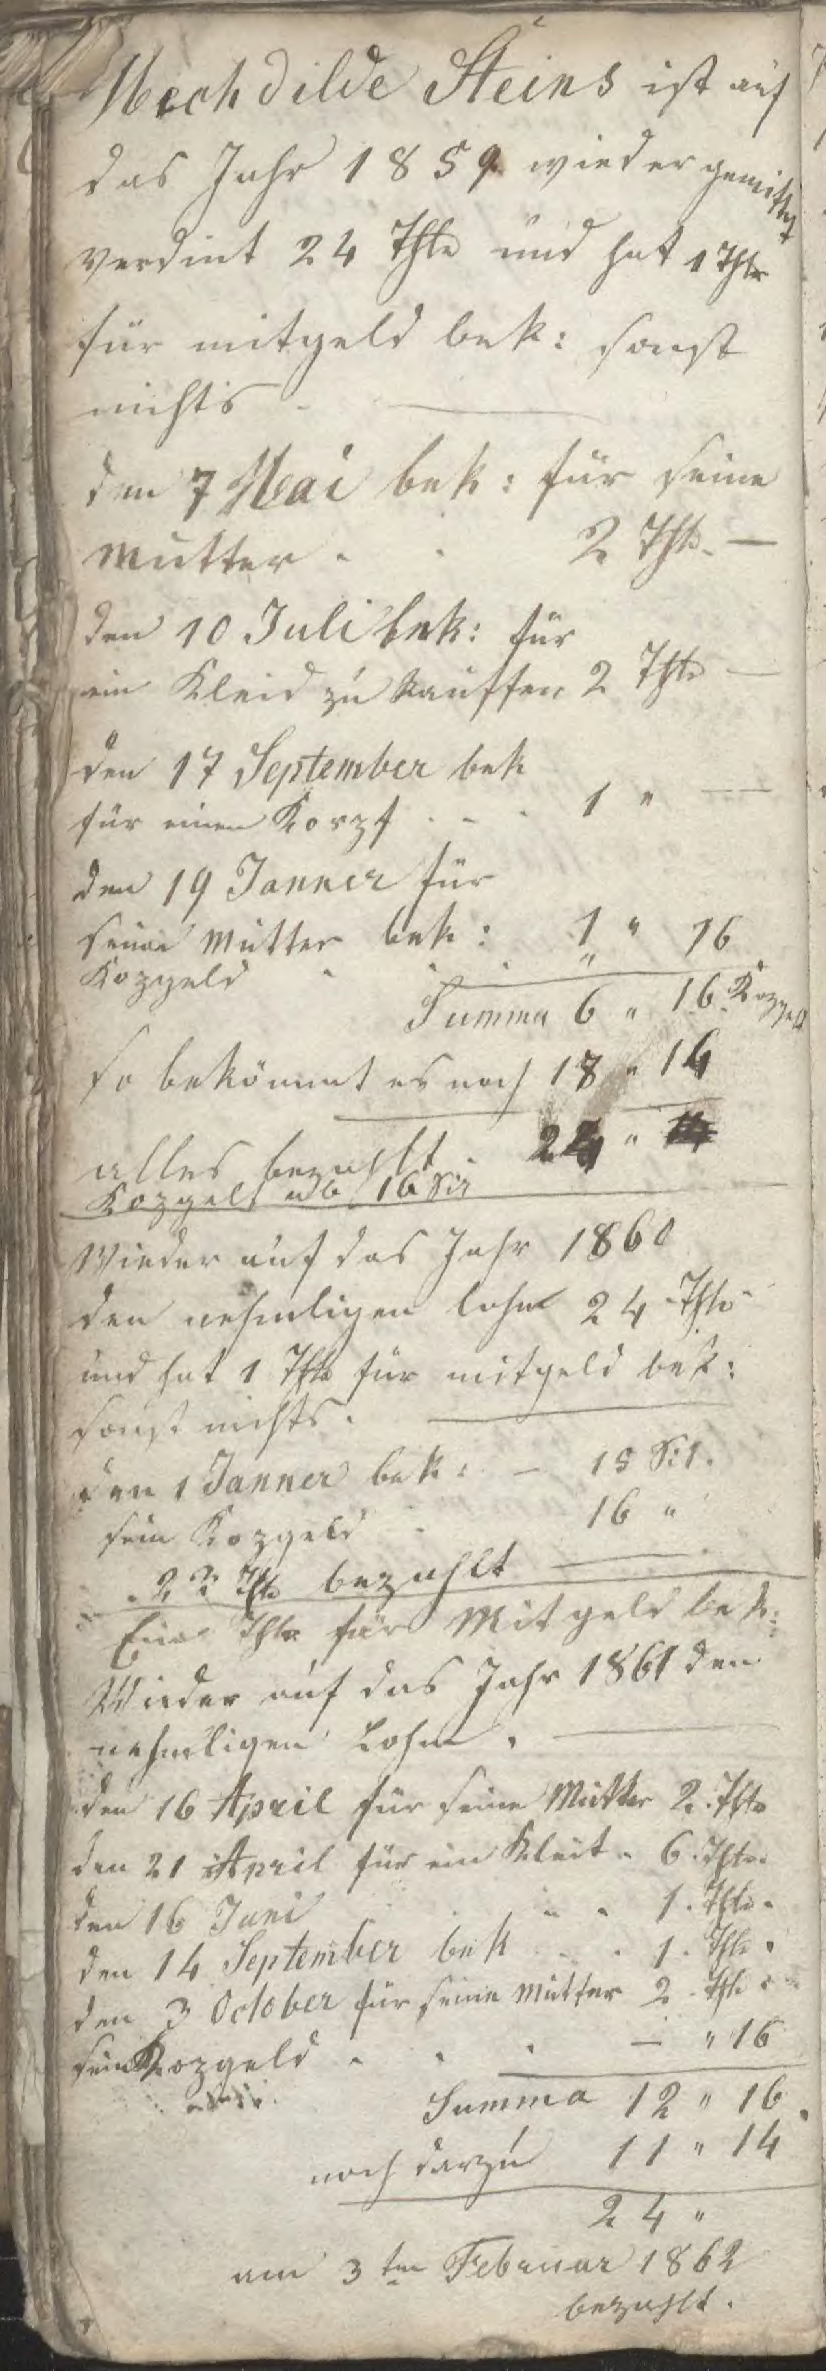 Mechdilde Steins ist auf
das Jahr 1859 wieder gemittet
verdint 24 Thlr und hat 1 Thlr
für mitgeld bek: sonst
nichts -
den 7 Mai bek: für seine
Mutter - - 2 Thlr. —
den 10 Juli bek: für
ein Kleid zu kauffen 2 Thlr —
den 17 September bek
für einen Korzf - - - 1 " —
den 19 Janner für
seine Mutter bek: 1 " 16
Kozgeld - - - "
Summa 6 " 16 Kozgeld
so bekömmt es noch 18 " 14
alles bezahlt. 24 "
Kozgeld ab 16 Sil
Wieder auf das Jahr 1860
den nehmligen lohn 24 Thlr
und hat 1 Thlr für mitgeld bek:
sonst nichts.
den 1 Janner bek: — 15 Sil.
sein Kozgeld - 16 "
22 Thlr bezahlt —
Ein Thlr für Mitgeld bek:
Wieder auf das Jahr 1861 den
nehmligen Lohn. —
den 16 April für seine Mutter 2. Thlr
den 21 April für ein Kleit - 6. Thlr.
den 16 Juni - - 1. Thlr.
den 14 September bek - - 1. Thlr.
den 3 October für seine Mutter 2. Thlr
sein Kozgeld - - - — " 16
Summa 12 " 16.
noch darzu 11 " 14
24 "
am 3ten Februar 1862
bezahlt.